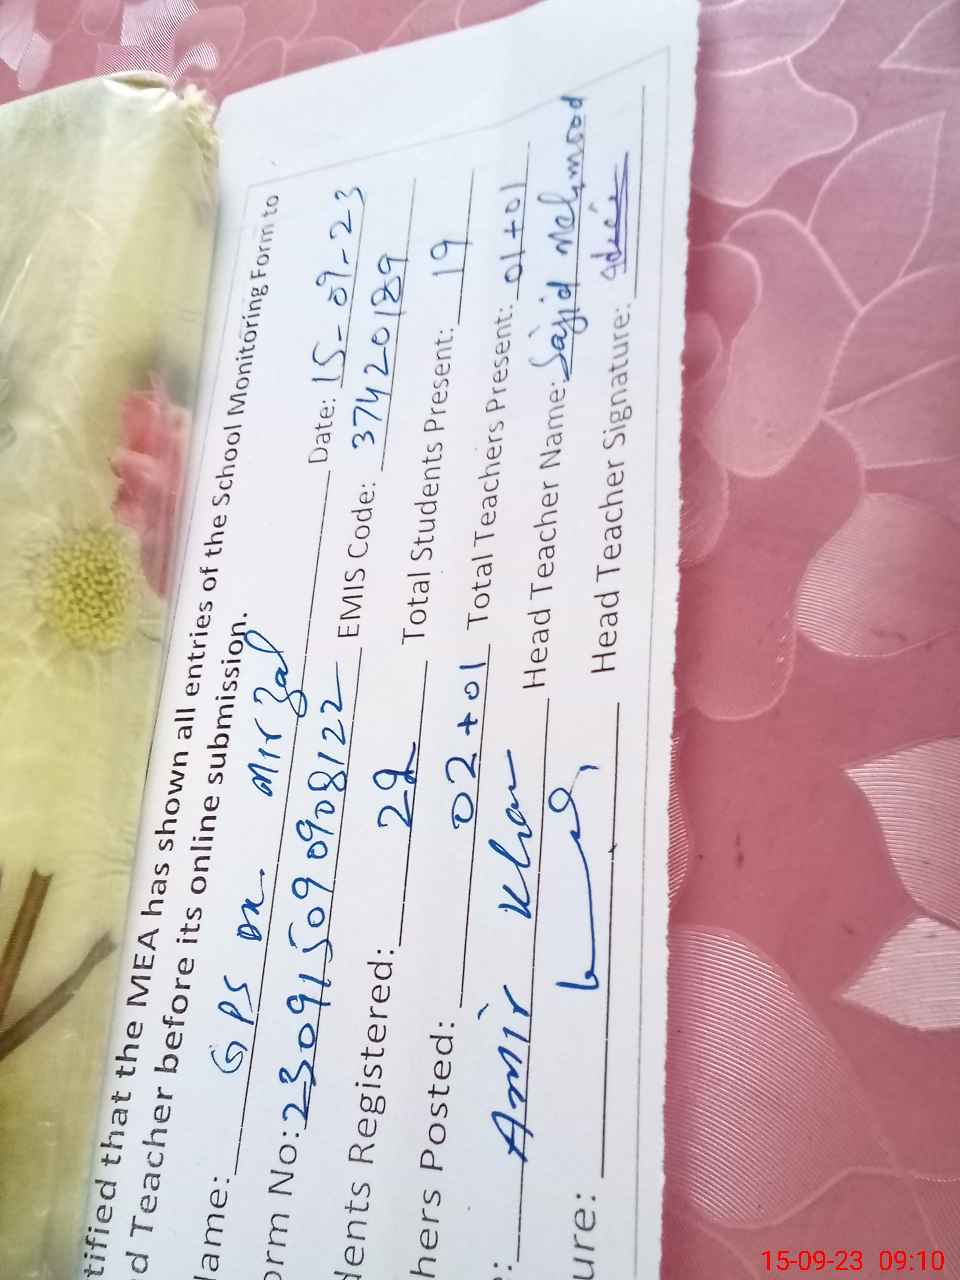 tified that the MEA has shown all entries of the School Monitoring Form to
d Teacher before its online submission.
lame: GPS DK. Mirzal Date: 15-09-23
orm No: 230915090908122 EMIS Code: 37420189
dents Registered: 29 Total Students Present: 19
hers Posted: 02+01 Total Teachers Present: 01+01
: Amir Khan Head Teacher Name: Sajid Mehmood
ure: Head Teacher Signature:
15-09-23 09:10